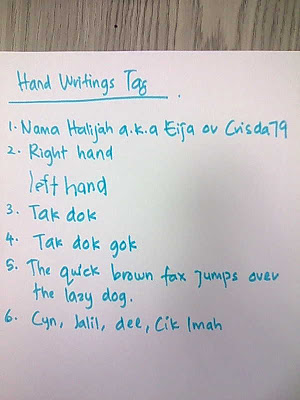 Hand Writings Tag
1. Nama Halijah a.k.a Eija or Crisda79
2. Right hand
left hand
3. Tak dok
4. Tak dok gok
5. The quick brown fax jumps over
the lazy dog.
6. Cyn, Jalil, dee, Cik Imah